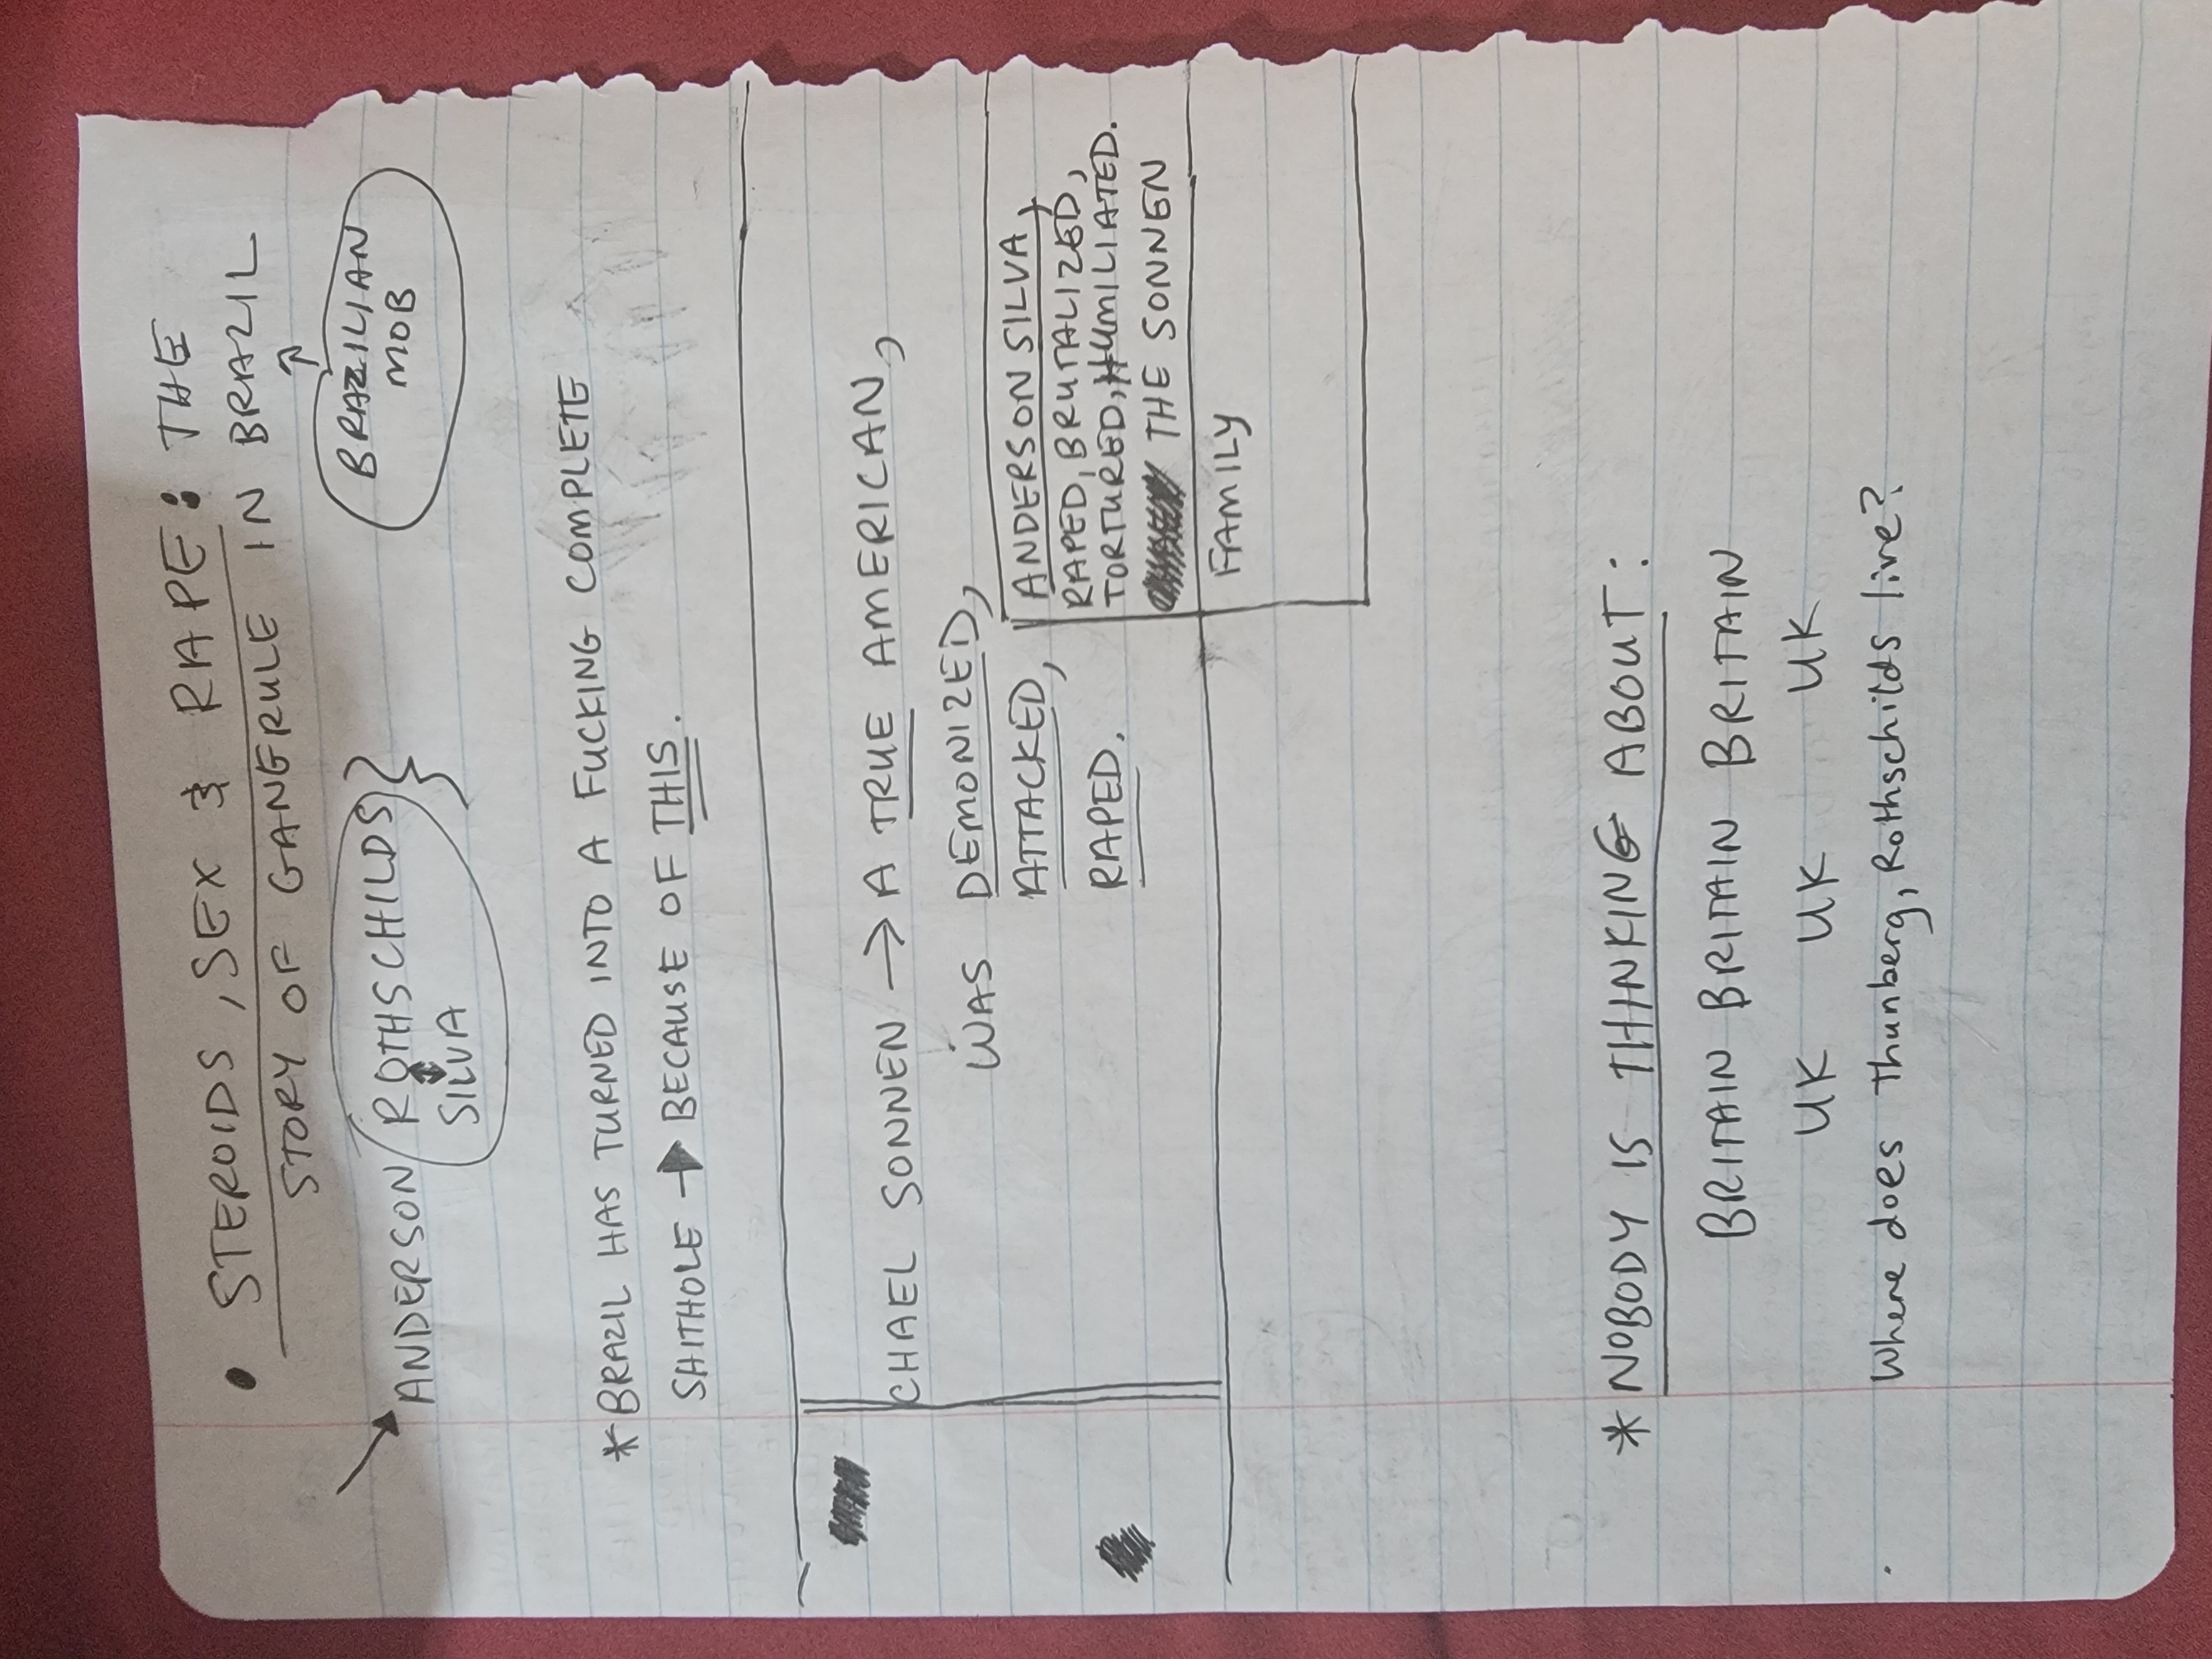 • STEROIDS, SEX & RAPE: THE
STORY OF GANGRULE IN BRAZIL
BRAZILIAN
MOB
ANDERSON ROTHSCHILDS }
SILVA
* BRAZIL HAS TURNED INTO A FUCKING COMPLETE
SHITHOLE → BECAUSE OF THIS.
CHAEL SONNEN → A TRUE AMERICAN,
WAS DEMONIZED,
ATTACKED,
RAPED.
ANDERSON SILVA,
RAPED, BRUTALIZED,
TORTURED, HUMILIATED.
THE SONNEN
FAMILY
* NOBODY IS THINKING ABOUT:
BRITAIN BRITAIN BRITAIN
UK UK UK
Where does Thunberg, Rothschilds live?